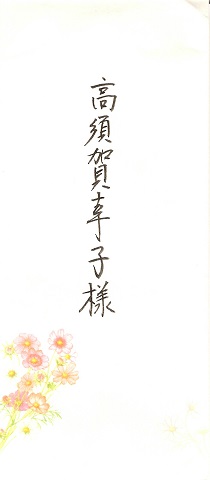 高須賀幸子様